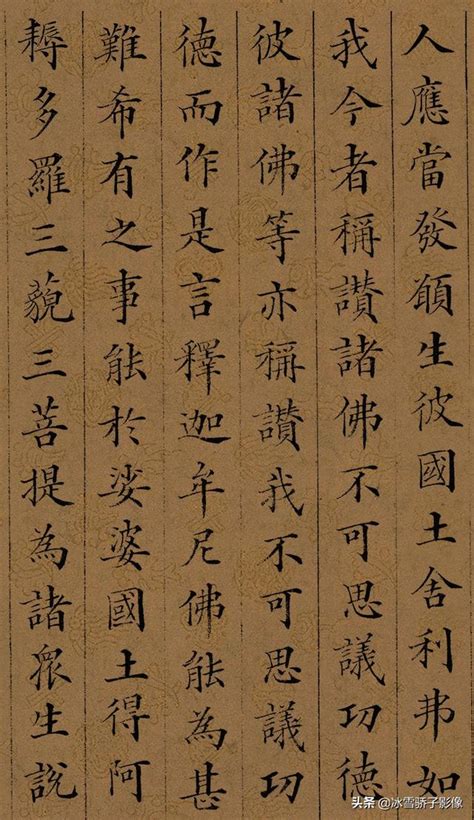 人應當發願生彼國土舍利弗如
我今者稱讃諸佛不可思議功德
彼諸佛等亦稱讃我不可思議功
德而作是言釋迦牟尼佛能為甚
難希有之事能於娑婆國土得阿
耨多羅三藐三菩提為諸眾生說
头条 @冰雪骄子影像